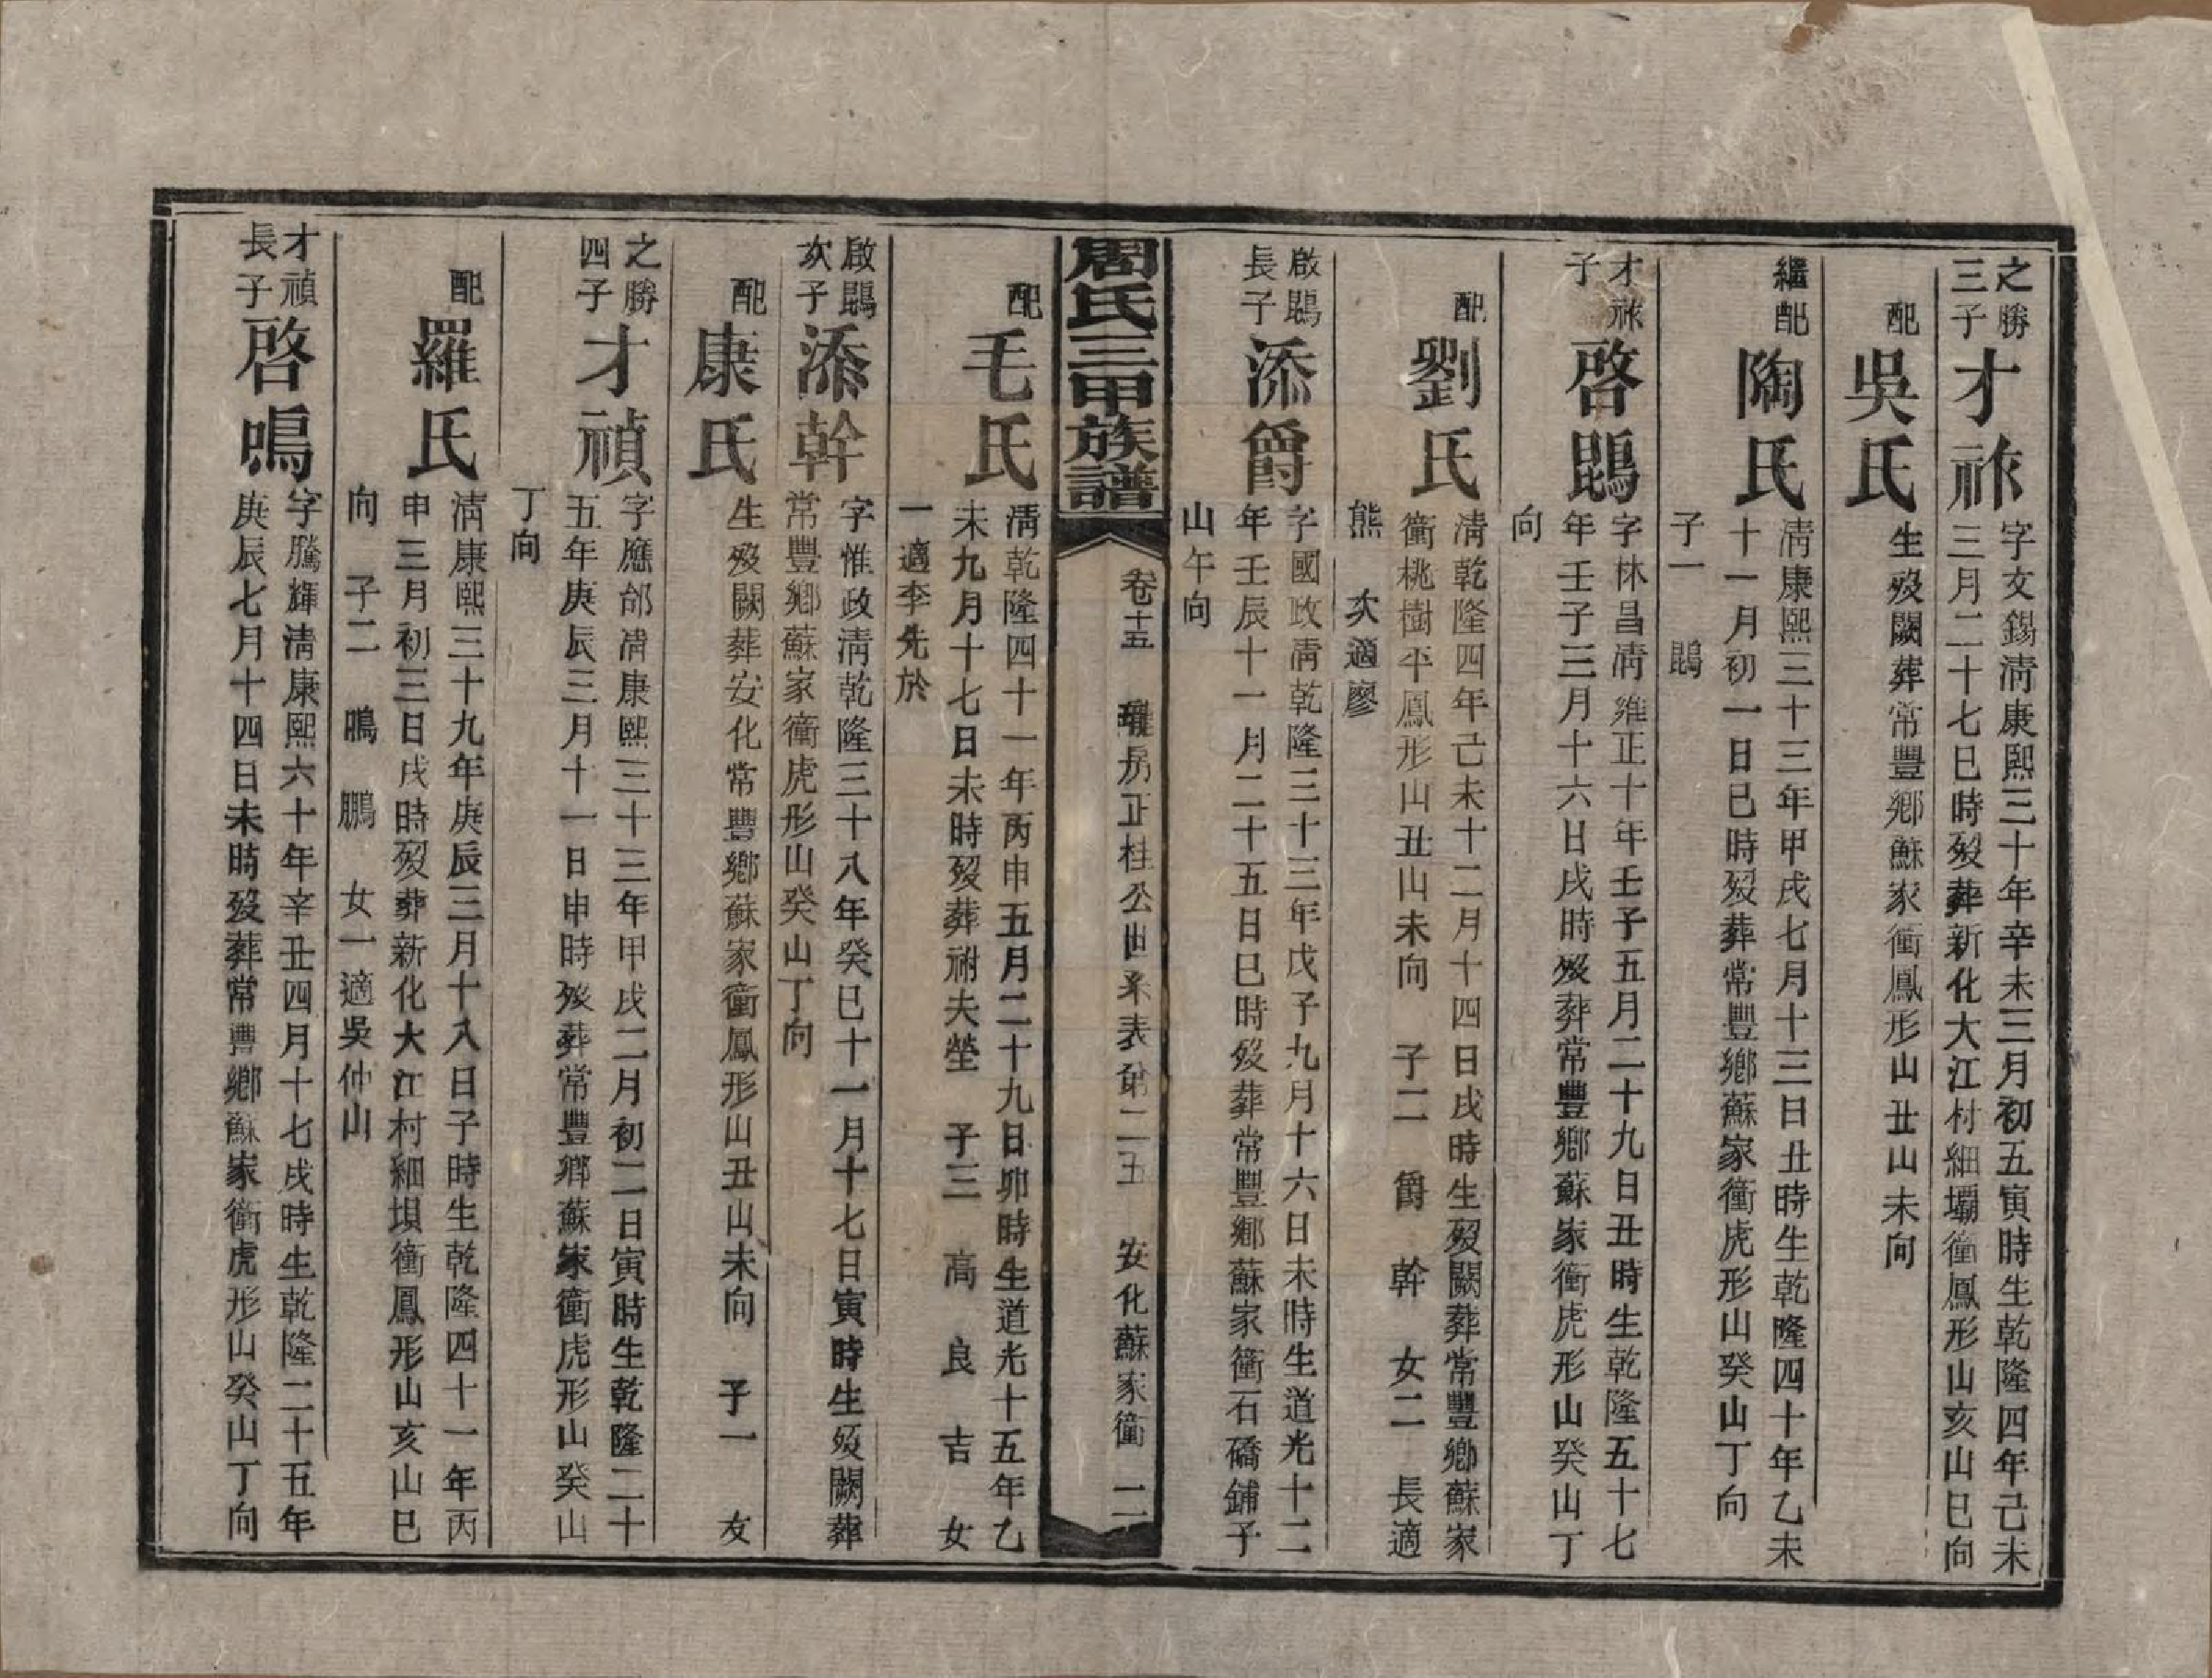 之勝
三子
才祚
字文錫清康熙三十年辛未三月初五寅時生乾隆四年己未
三月二十七巳時歿葬新化大江村細壩衝鳳形山亥山巳向
配
吳氏
生歿闕葬常豐鄉蘇家衝鳳形山丑山未向
繼配
陶氏
清康熙三十三年甲戌七月十三日丑時生乾隆四十年乙未
十一月初一日巳時歿葬常豐鄉蘇家衝虎形山癸山丁向
子一 鵾
才祚
子
啓鵾
字林昌清雍正十年壬子五月二十九日丑時生乾隆五十七
年壬子三月十六日戌時歿葬常豐鄉蘇家衝虎形山癸山丁
向
配
劉氏
清乾隆四年己未十二月十四日戌時生歿闕葬常豐鄉蘇家
衝桃樹平鳳形山丑山未向 子二 爵 幹 女二 長適
熊 次適廖
啟鵾
長子
添爵
字國政清乾隆三十三年戊子九月十六日未時生道光十二
年壬辰十一月二十五日巳時歿葬常豐鄉蘇家衝石礄鋪子
山午向
周氏三甲族譜
卷十五 房正桂公世系表第二五 安化蘇家衝 二
配
毛氏
清乾隆四十一年丙申五月二十九日卯時生道光十五年乙
未九月十七日未時歿葬祔夫塋 子三 高 良 吉 女
一適李先於
啟鵾
次子
添幹
字惟政清乾隆三十八年癸巳十一月十七日寅時生歿闕葬
常豐鄉蘇家衝虎形山癸山丁向
配
康氏
生歿闕葬安化常豐鄉蘇家衝鳳形山丑山未向 子一 友
之勝
四子
才禎
字應郃清康熙三十三年甲戌二月初二日寅時生乾隆二十
五年庚辰三月十一日申時歿葬常豐鄉蘇家衝虎形山癸山
丁向
配
羅氏
清康熙三十九年庚辰三月十八日子時生乾隆四十一年丙
申三月初三日戌時歿葬新化大江村細垻衝鳳形山亥山巳
向 子二 鳴 鵬 女一適吳仲山
才禎
長子
啓鳴
字騰輝清康熙六十年辛丑四月十七戌時生乾隆二十五年
庚辰七月十四日未時歿葬常豐鄉蘇家衝虎形山癸山丁向